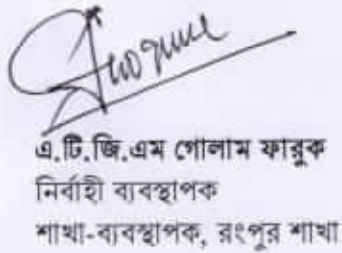 এ.টি.জি.এম গোলাম ফারুক
নির্বাহী ব্যবস্থাপক
শাখা-ব্যবস্থাপক, রংপুর শাখা